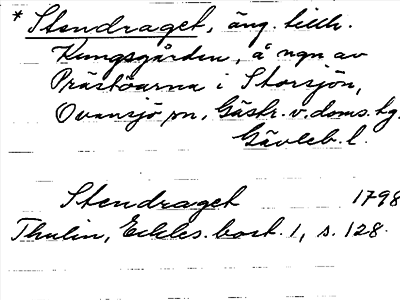 * Stendraget, äng. tillh.
Kungsgården, å ngn av
Prästöarna i Storsjön,
Ovansjö sn, Gästr. v. doms. hg.
Gävleb. l.
Stendraget 1798
Thulin, Eckles. bost. 1, s. 128.